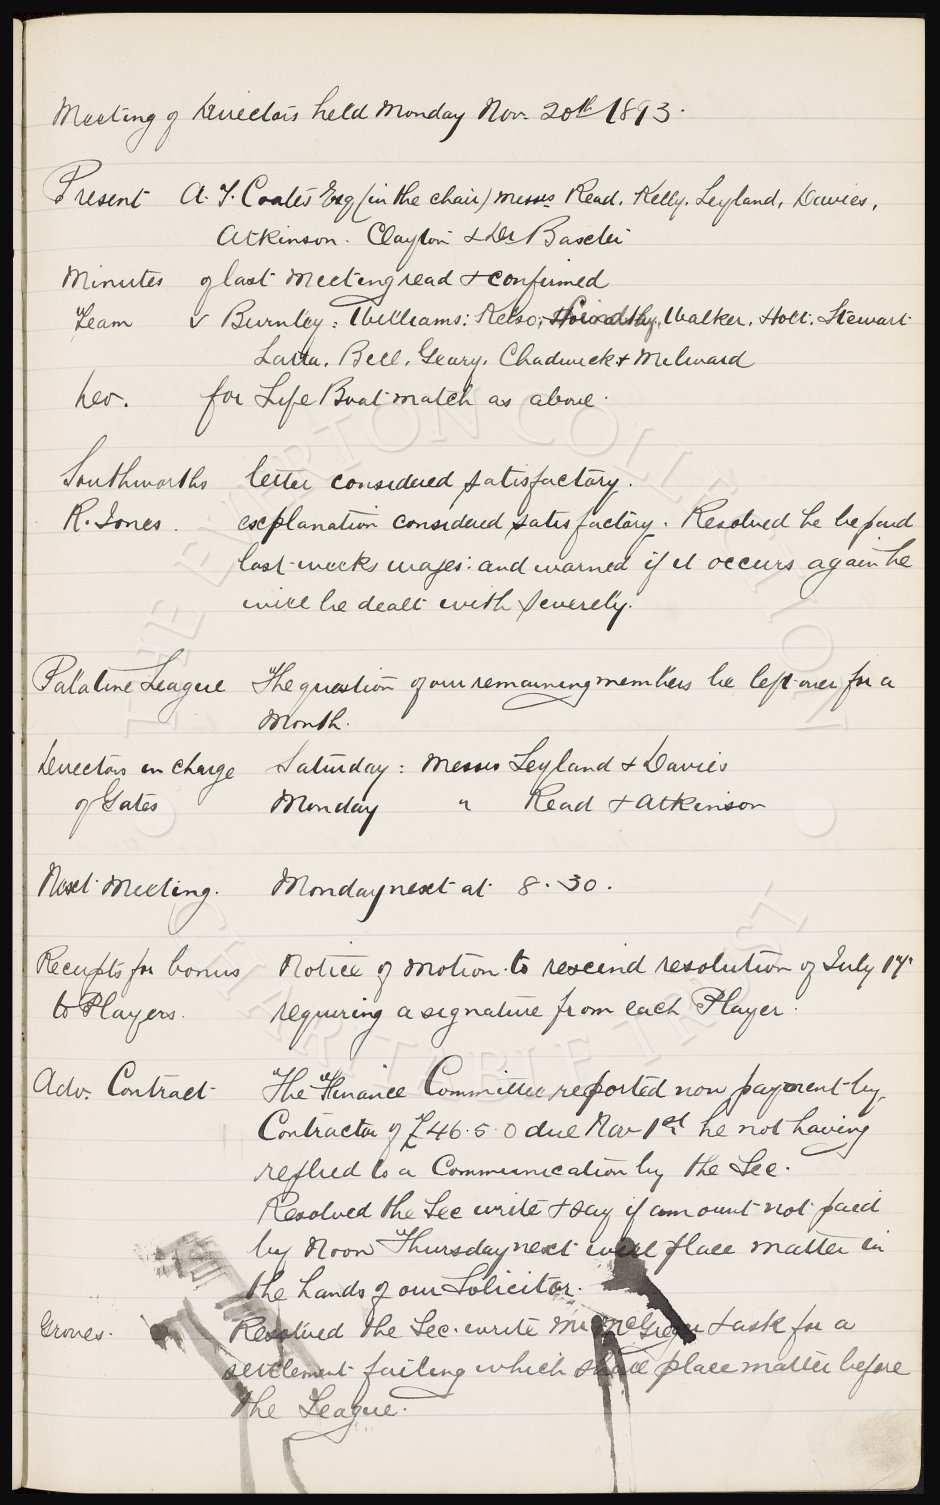 Meeting of Directors held Monday Nov. 20th 1893.
Present A. T. Coates Esq (in the chair) Messrs Read, Kelly, Leyland, Davies,
Atkinson. Clayton & Dr Baxter
Minutes of last meeting read & confirmed
Team v Burnley: Williams: Kelso: Walker, Holt, Stewart
Latta, Bell, Geary, Chadwick & Milward
for Life Boat match as above.
Southworths letter considered satisfactory.
R. Jones. explanation considered satisfactory. Resolved he be paid
last weeks wages: and warned if it occurs again he
will be dealt with severely.
Palatine League The question of our remaining members be left over for a
month.
Directors in charge Saturday: Messrs Leyland & Davies
of Gates Monday " Read & Atkinson
Next Meeting. Monday next at 8.30.
Receipts for bonus Notice of motion to rescind resolution of July 17
to Players. requiring a signature from each Player.
Adv. Contract The Finance Committee reported non payment by
Contractor of £46.5.0 due Nov 1st he not having
replied to a Communication by the Sec.
Resolved the Sec write & say if amount not paid
by Noon Thursday next will place matter in
the hands of our Solicitor.
Groves. Resolved the Sec. write Mr McGregor & ask for a
settlement failing which shall place matter before
the League.
THE EVERTON COLLECTION
CHARITABLE TRUST